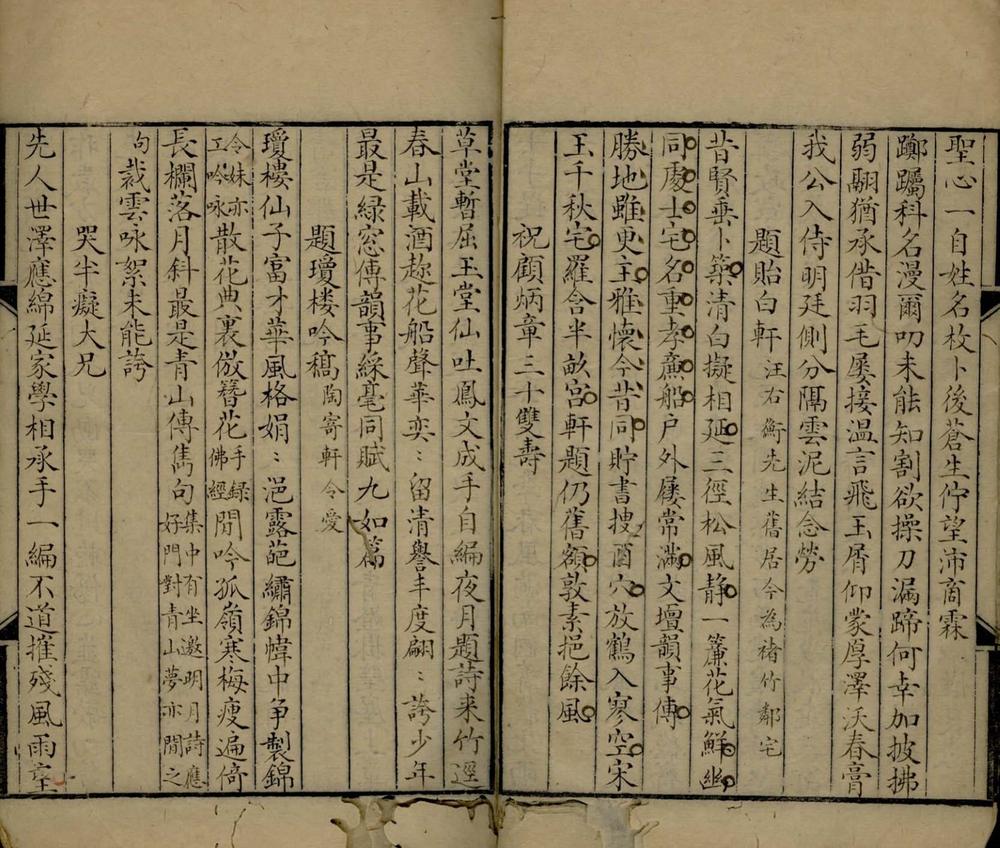 聖心一自姓名枚卜後蒼生佇望沛商霖
躑躅科名漫爾叨未能知割欲操刀漏蹄何幸加披拂
弱翮猶承借羽毛屡接温言飛玉屑仰蒙厚澤沃春膏
我公入侍明廷側分隔雲泥結念勞
題貽白軒汪右衡先生舊居今為褚竹鄰宅
昔賢垂卜築清白擬相延三徑松風静一簾花氣鮮幽
同處士宅名重孝廉船户外屡常滿文壇韻事傳
勝地雖更主雅懷今昔同貯書搜酉穴放鶴入寒空宋
玉千秋宅羅含半畝宮軒題仍舊額敦素挹餘風
祝顧炳章三十雙壽
草堂暫屈玉堂仙吐鳳文成手自編夜月題詩来竹逕
春山載酒趂花船聲華奕〻留清譽丰度翩〻誇少年
最是緑窓傳韻事綵毫同賦九如篇
題瓊楼吟稿陶寄軒令愛
瓊樓仙子富才華風格娟〻浥露葩繡錦幃中争製錦
令妹亦工吟咏散花典裏倣簪花手録佛經閒吟孤嶺寒梅瘦遍倚
長欄落月斜最是青山傳雋句集中有坐邀明月詩應好門對青山夢亦閒之
句裁雲咏絮未能誇
哭半癡大兄
先人世澤應綿延家學相承手一編不道摧残風雨至